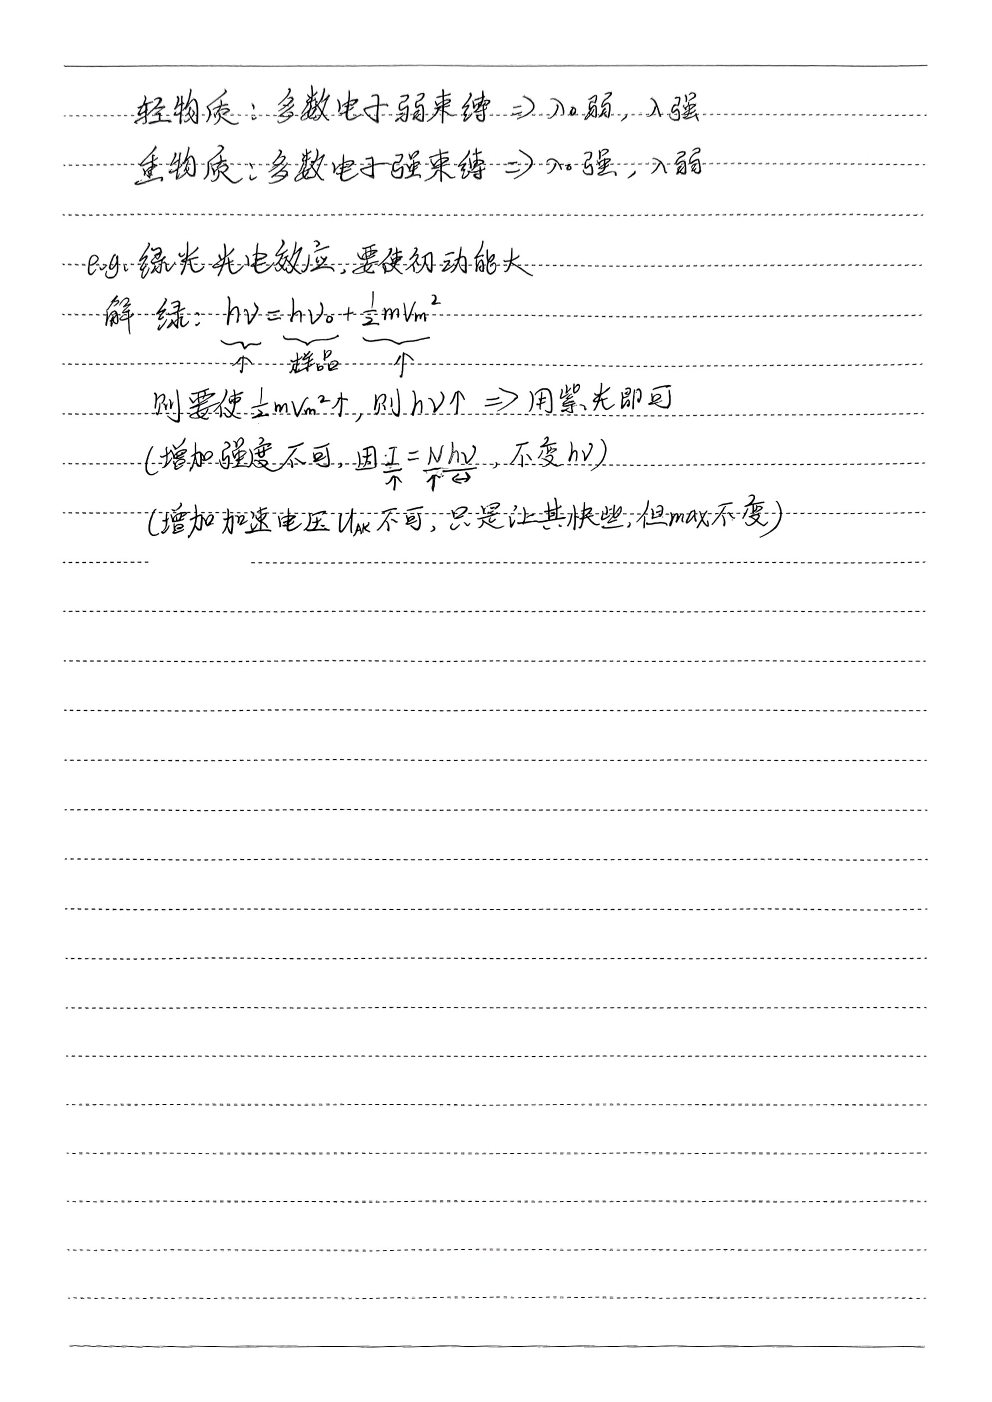 轻物质：多数电子弱束缚 => λ₀弱，λ强
重物质：多数电子强束缚 => λ₀强，λ弱
e.g. 绿光光电效应，要使初动能大
解 绿：hν = hν₀ + ½mVm²
↑ 样品 ↑
则要使½mVm²↑，则hν↑ => 用紫光即可
(增加强度不可，因I = Nhν，不变hν)
↑ ↑ ↔
(增加加速电压UAK不可，只是让其快些，但max不变)